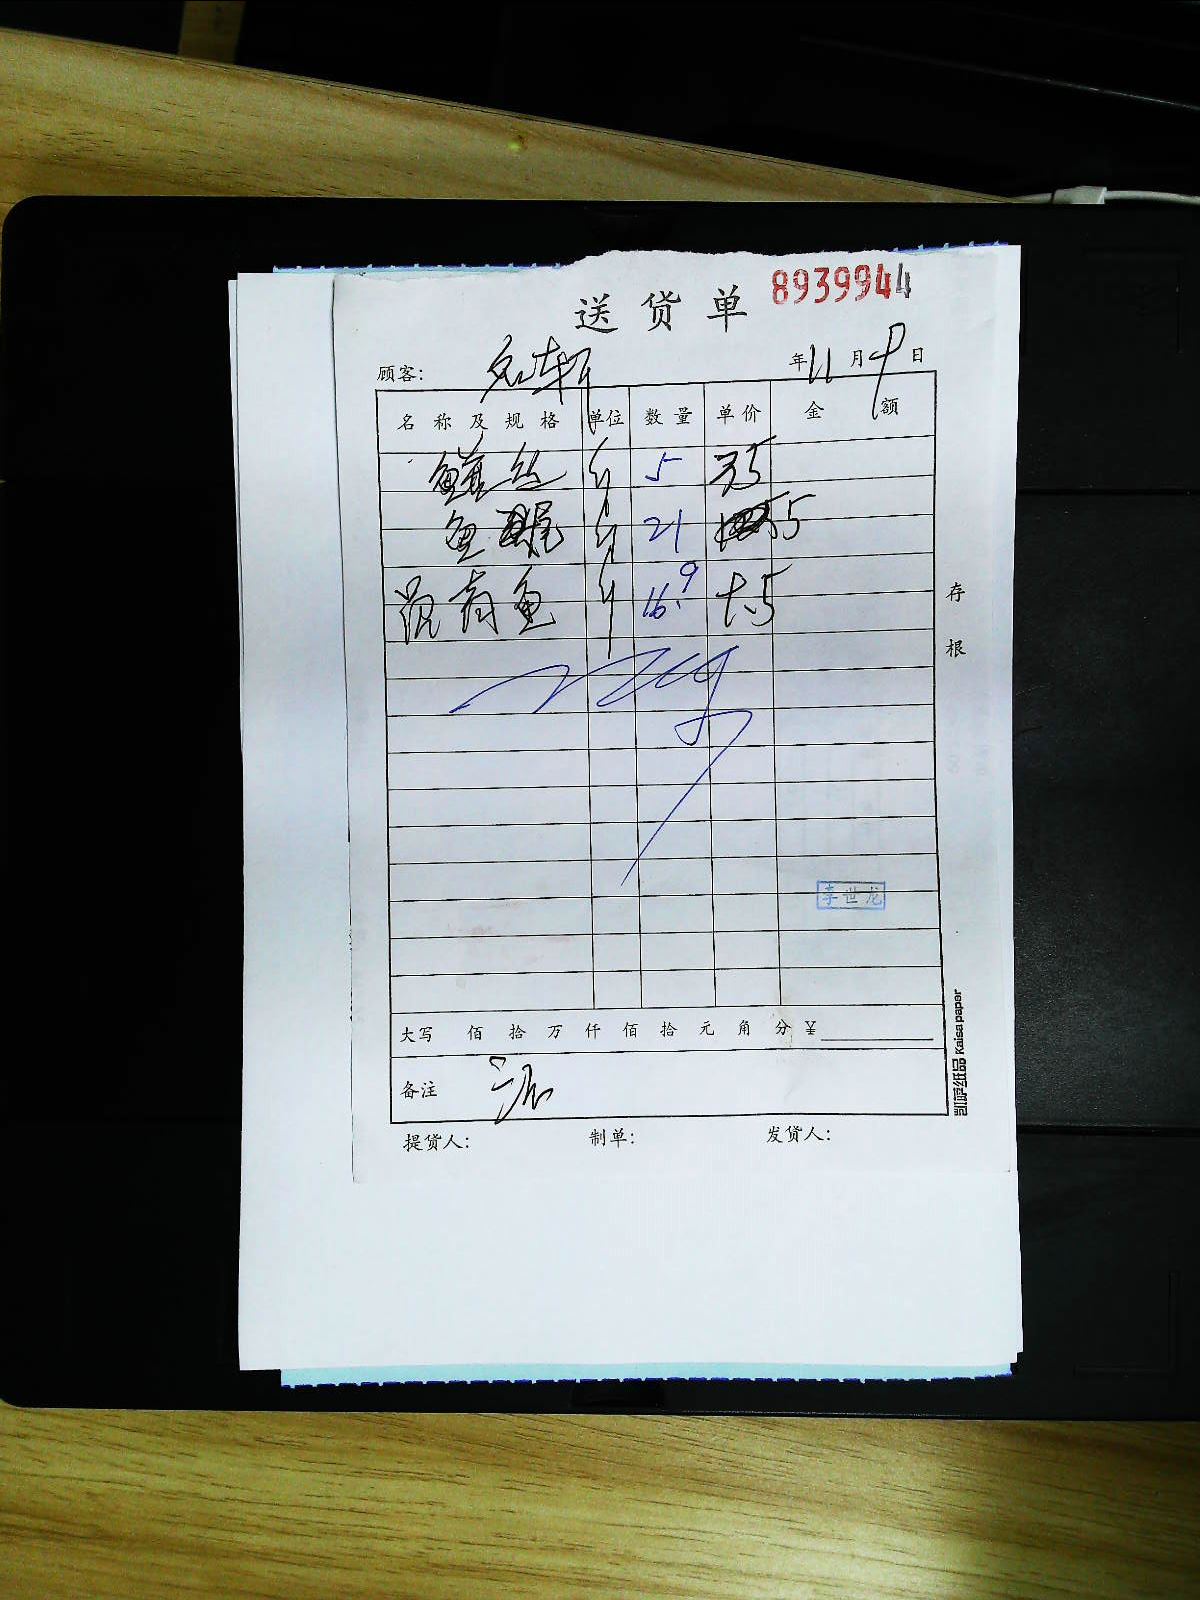 送货单 8939944
顾客: 名轩 年 11 月 9 日
名称及规格 单位 数量 单价 金额
鳝丝 斤 5 35
鱼尾 斤 21 55
青鱼 斤 16.9
存根
李世龙
大写 佰 拾 万 仟 佰 拾 元 角 分 ¥
备注
提货人: 制单: 发货人:
凯萨纸品 Kaisa paper